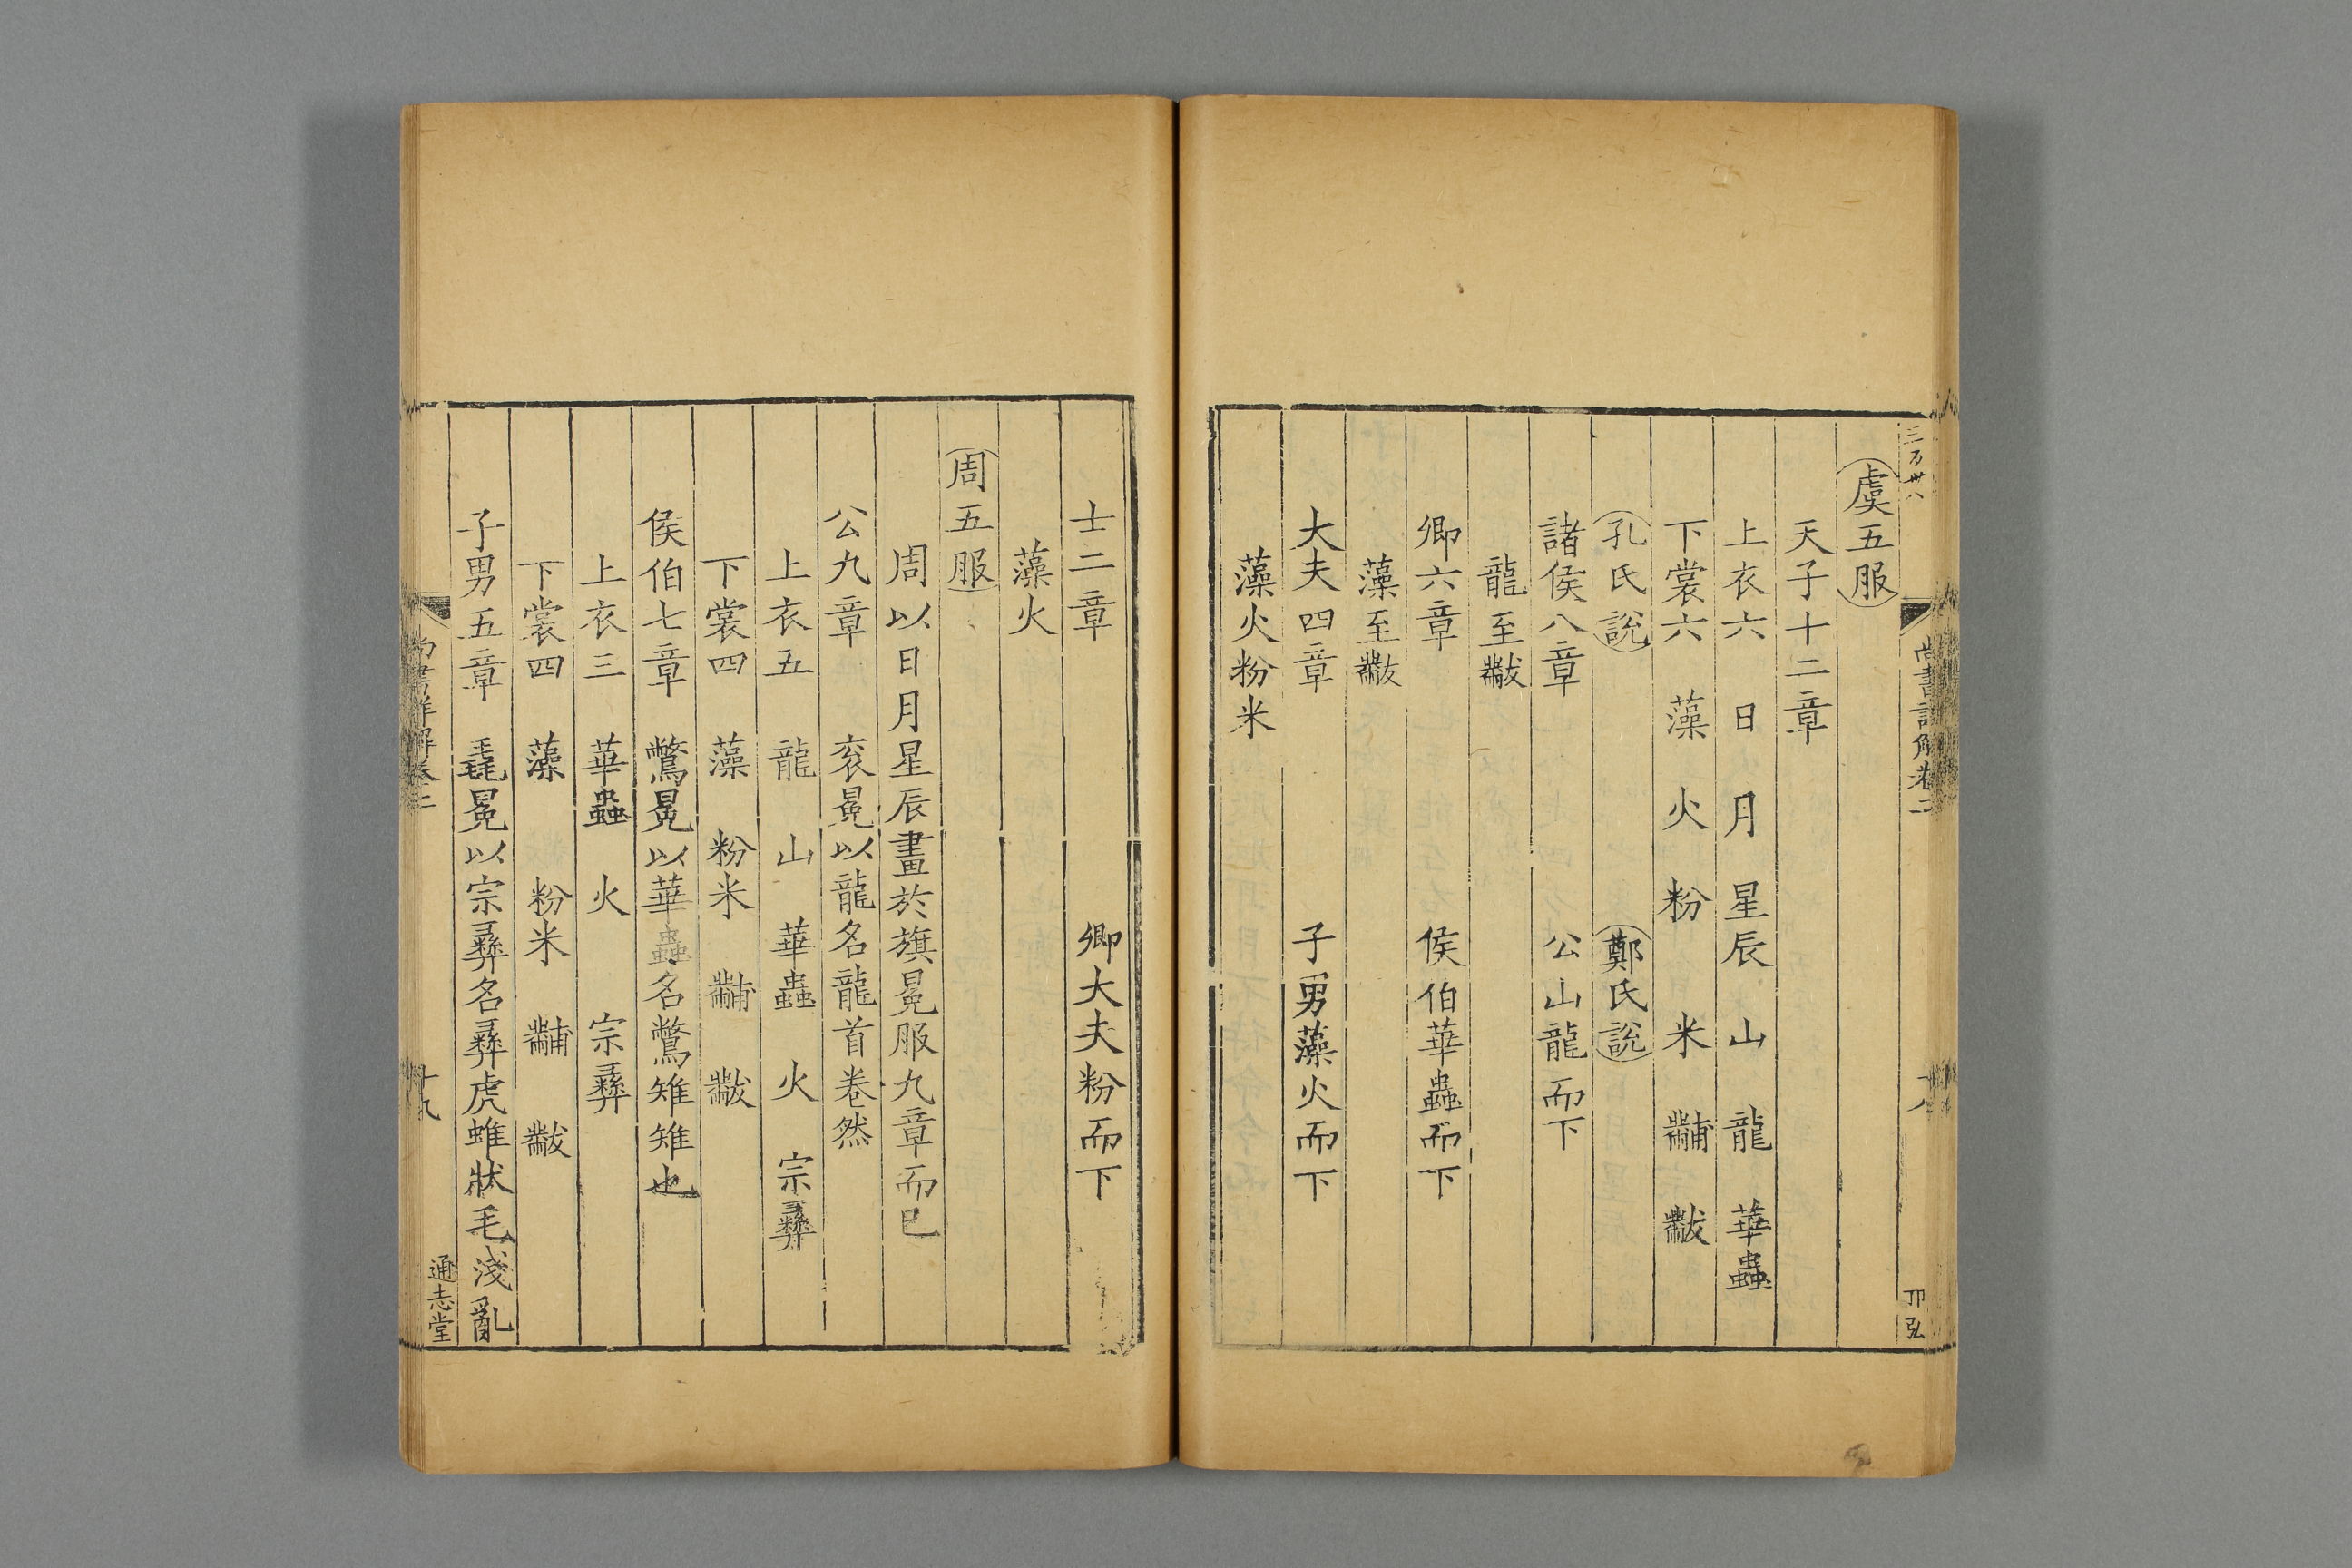 三百卅八
尚書詳解卷二
虞五服
天子十二章
上衣六 日 月 星辰 山 龍 華蟲
下裳六 藻 火 粉 米 黼 黻
孔氏說 鄭氏說
諸侯八章 公山龍而下
龍至黻
卿六章 侯伯華蟲而下
藻至黻
大夫四章 子男藻火而下
藻火粉米
士二章 卿大夫粉而下
藻火
周五服
周以日月星辰畫於旗冕服九章而已
公九章 衮冕以龍名龍首卷然
上衣五 龍 山 華蟲 火 宗彝
下裳四 藻 粉米 黼 黻
侯伯七章 鷩冕以華蟲名鷩雉雉也
上衣三 華蟲 火 宗彝
下裳四 藻 粉米 黼 黻
子男五章 毳冕以宗彝名彝虎蜼狀毛淺亂
尚書詳解卷二 十九 通志堂